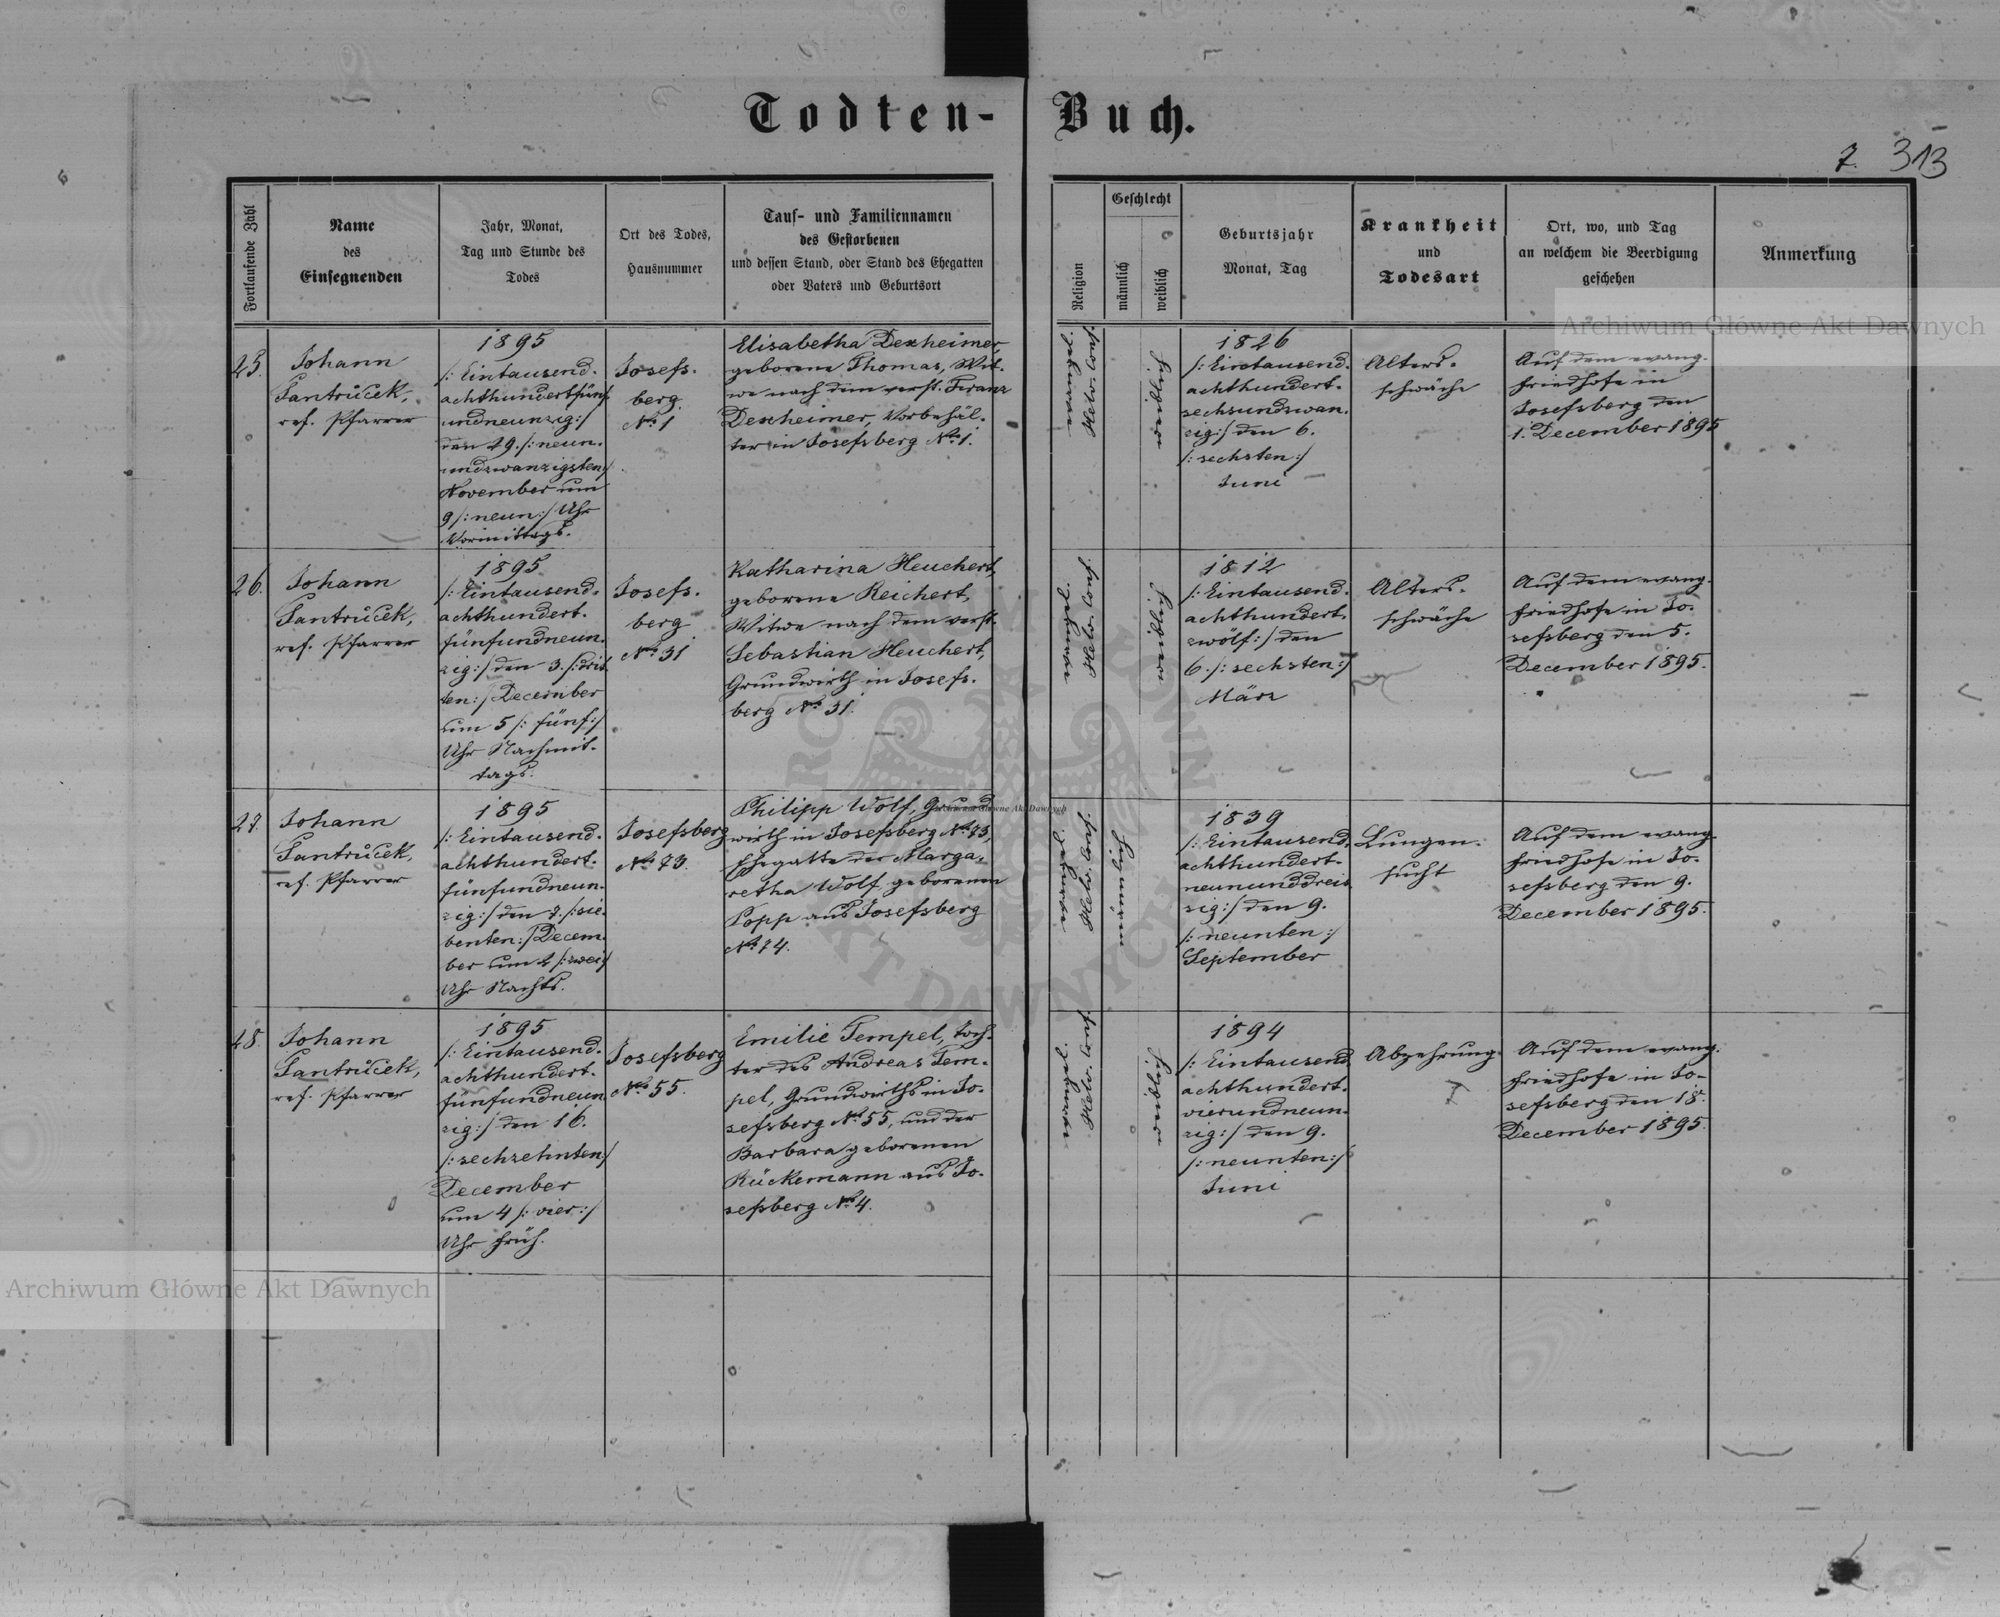 Todten-Buch.
7. 313
Fortlaufende Zahl
Name
des
Einsegnenden
Jahr, Monat,
Tag und Stunde des
Todes
Ort des Todes,
Hausnummer
Tauf- und Familiennamen
des Gestorbenen
und dessen Stand, oder Stand des Ehegatten
oder Vaters und Geburtsort
Religion
Geschlecht
männlich
weiblich
Geburtsjahr
Monat, Tag
Krankheit
und
Todesart
Ort, wo, und Tag
an welchem die Beerdigung
geschehen
Anmerkung
25.
Johann
Pantrůček,
ref. Pfarrer
1895
/: Eintausend-
achthundertfünf
undneunzig :/
den 29. /: neun-
undzwanzigsten :/
November um
9 /: neun :/ Uhr
Vormittags.
Josefs-
berg
No 1
Elisabetha Dexheimer,
geborene Thomas, Wit-
we nach dem verst. Franz
Dexheimer, Vorbehäl-
ter in Josefsberg No 1.
evangel.
Helv. Conf.
weiblich
1826
/: Eintausend-
achthundert-
sechsundzwan-
zig :/ den 6.
/: sechsten :/
Juni
Alters-
schwäche
Auf dem evang.
Friedhofe in
Josefsberg den
1. December 1895
26.
Johann
Pantrůček,
ref. Pfarrer
1895
/: Eintausend-
achthundert-
fünfundneun-
zig :/ den 3. /: drit-
ten :/ December
um 5 /: fünf :/
Uhr Nachmit-
tags.
Josefs-
berg
No 31
Katharina Heuchert,
geborene Reichert,
Witwe nach dem verst.
Sebastian Heuchert,
Grundwirth in Josefs-
berg No 31.
evangel.
Helv. Conf.
weiblich
1812
/: Eintausend-
achthundert-
zwölf :/ den
6. /: sechsten :/
März
Alters-
schwäche
Auf dem evang.
Friedhofe in Jo-
sefsberg den 5.
December 1895.
27.
Johann
Pantrůček,
ref. Pfarrer
1895
/: Eintausend-
achthundert-
fünfundneun-
zig :/ den 7. /: sie-
benten :/ Decem-
ber um 2 /: zwei :/
Uhr Nachts.
Josefsberg
No 73.
Philipp Wolf, Grund-
wirth in Josefsberg No 73,
Ehegatte der Marga-
retha Wolf geborenen
Popp aus Josefsberg
No 74.
evangel.
Helv. Conf.
männlich
1839
/: Eintausend-
achthundert-
neununddreis-
zig :/ den 9.
/: neunten :/
September
Lungen-
sucht
Auf dem evang.
Friedhofe in Jo-
sefsberg den 9.
December 1895.
28.
Johann
Pantrůček,
ref. Pfarrer
1895
/: Eintausend-
achthundert-
fünfundneun-
zig :/ den 16.
/: sechzehnten :/
December
um 4 /: vier :/
Uhr früh.
Josefsberg
No 55.
Emilie Tempel, Toch-
ter des Andreas Tem-
pel, Grundwirths in Jo-
sefsberg No 55, und der
Barbara geborenen
Rückemann aus Jo-
sefsberg No 4.
evangel.
Helv. Conf.
weiblich
1894
/: Eintausend-
achthundert-
vierundneun-
zig :/ den 9.
/: neunten :/
Juni
Abzehrung
Auf dem evang.
Friedhofe in Jo-
sefsberg den 18.
December 1895.
Archiwum Główne Akt Dawnych
Archiwum Główne Akt Dawnych
Archiwum Główne Akt Dawnych